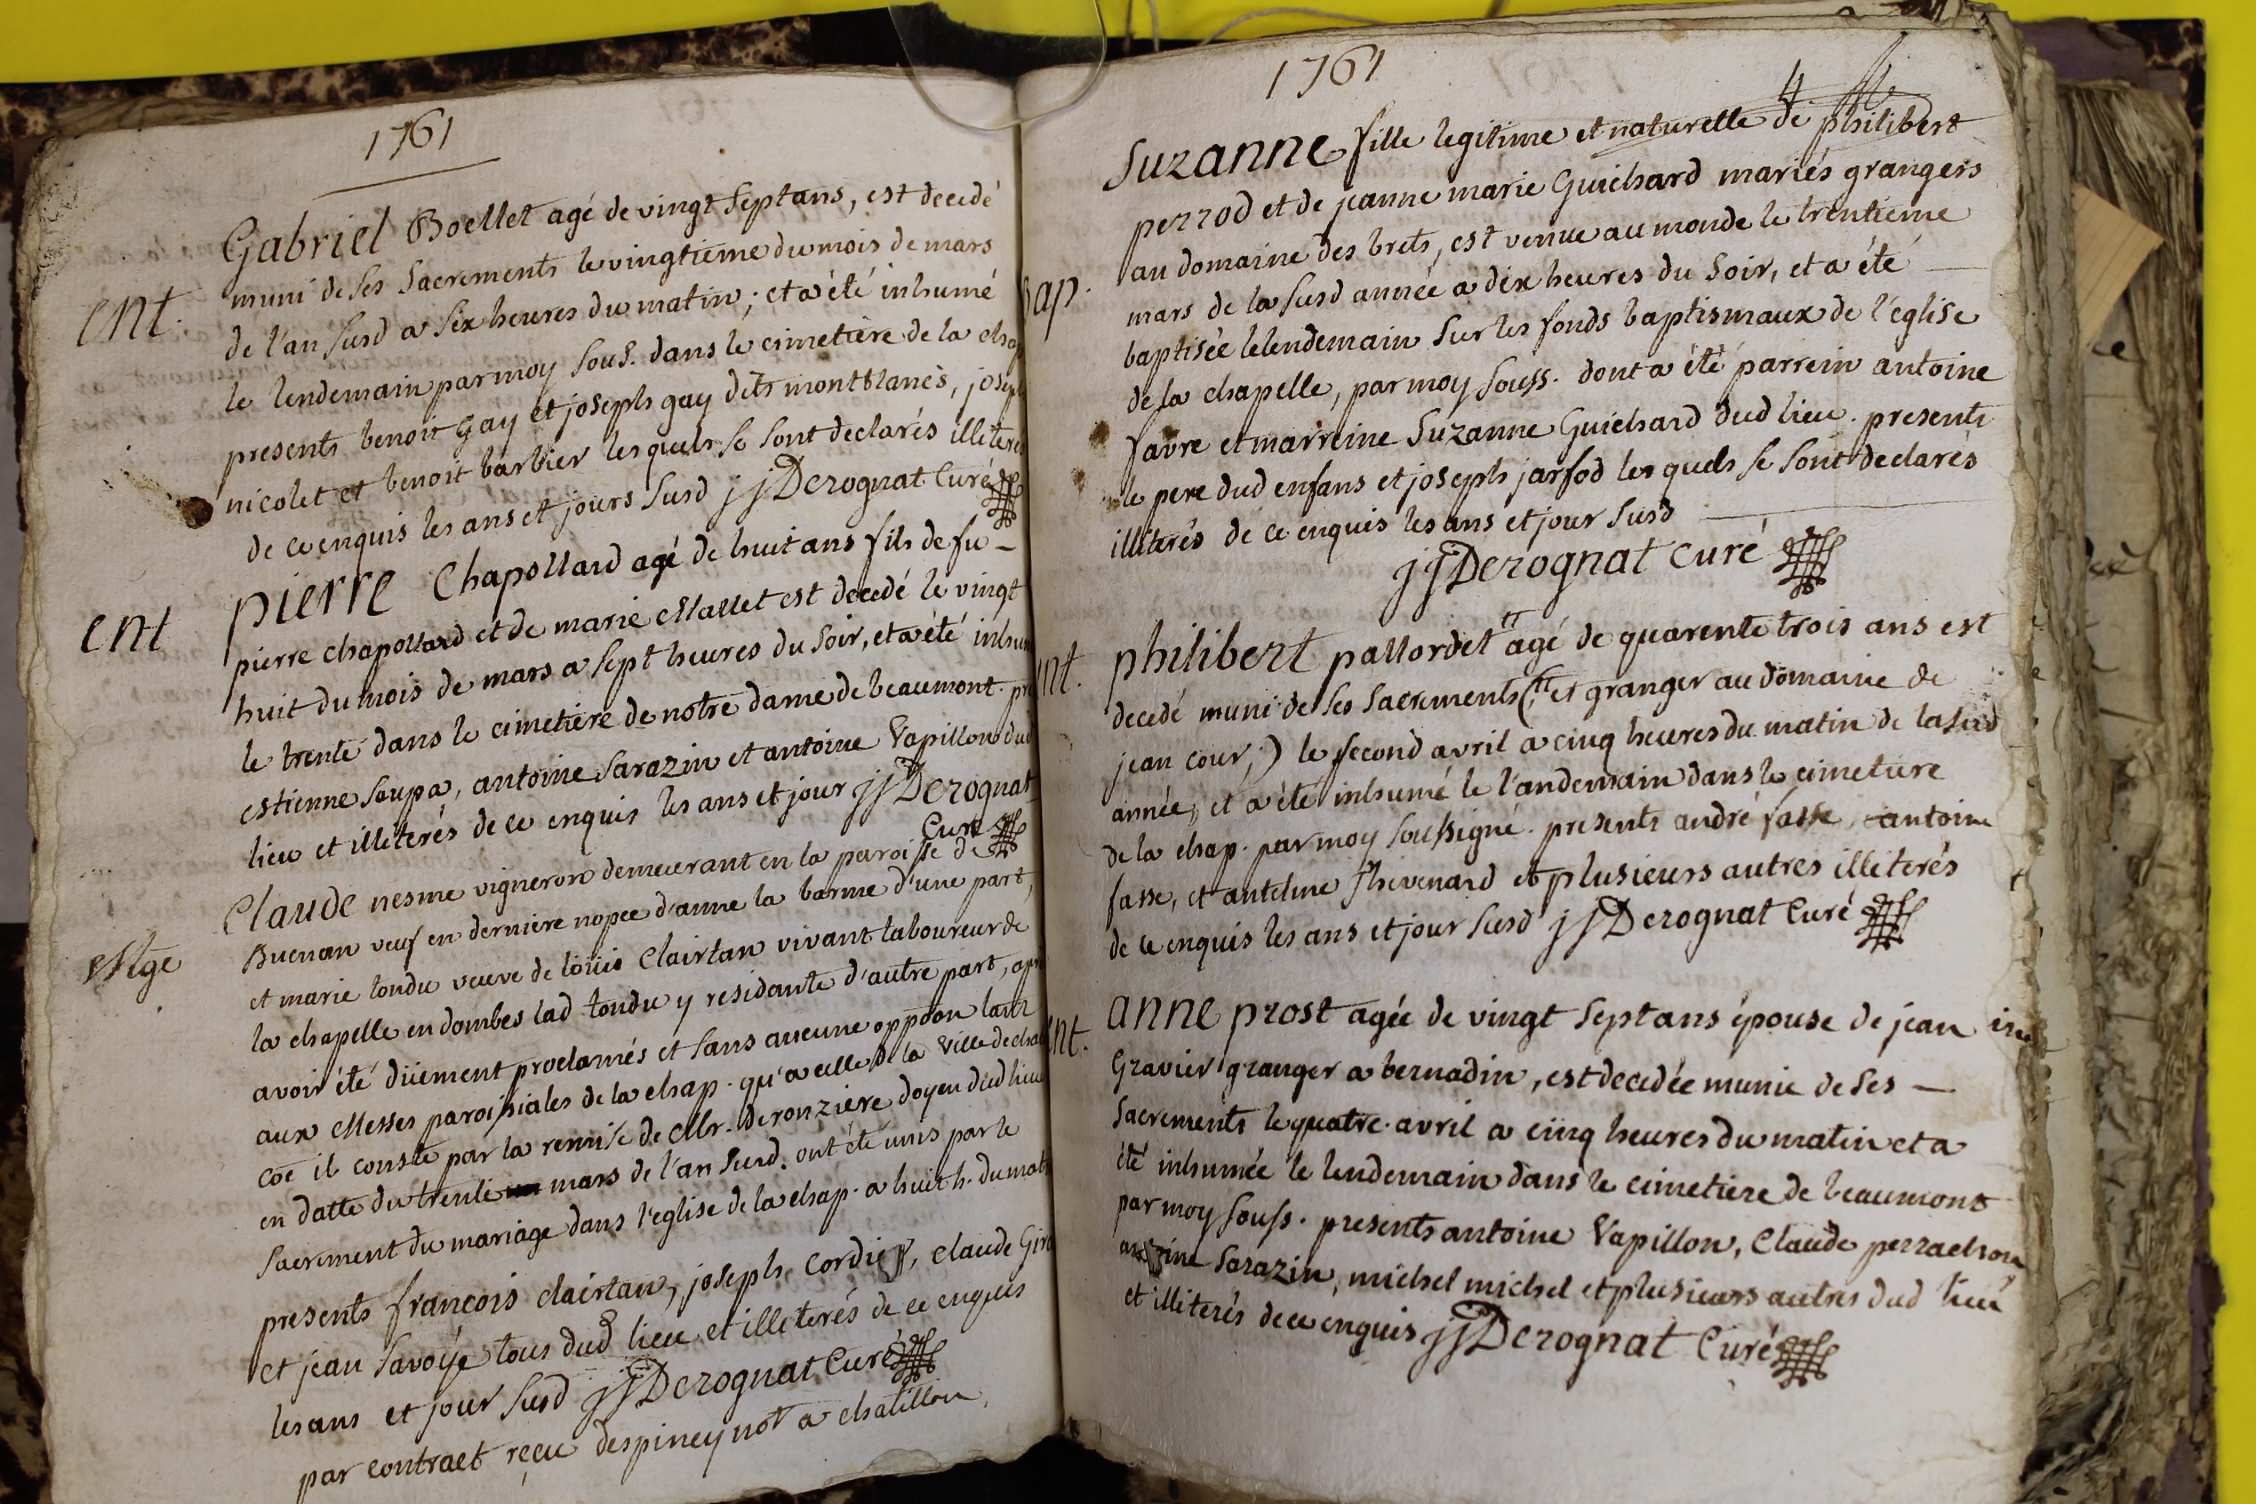 1761
Gabriel Boellet agé de vingt sept ans, est decedé
ent. muni de ses sacrements le vingtieme du mois de mars
de l'an susd a six heures du matin; et a été inhumé
le lendemain par moy sous. dans le cimetière de la chap
presents benoit gay et joseph gay dits montblancs, joseph
nicolet et benoit barbier lesquels se sont declarés illiterés
de ce enquis les ans et jours susd jjDerognat Curé
ent pierre Chapollard agé de huit ans fils de fu-
pierre chapollard et de marie Mallet est decedé le vingt
huit du mois de mars a sept heures du soir, et a été inhum
le trente dans le cimetière de notre dame de beaumont. pre
estienne soupa, antoine sarazin et antoine Vapillon dud
lieu et illiterés de ce enquis les ans et jour jjDerognat
Curé
Claude nesme vigneron demeurant en la paroisse de
Buenan veuf en derniere nopce d'anne la barme d'une part,
Mge et marie tondu veuve de loüis Clairtan vivant laboureur de
la chapelle en dombes lad tondu y residante d'autre part, apr
avoir été düement proclamés et sans aucune oppoon tant
aux Messes paroissiales de la chap. qu'a celle de la ville de cha
coe il conste par la remise de Mr. deronziere doyen dud lieu
en datte du trente mars de l'an susd. ont été unis par le
sacrement du mariage dans l'eglise de la chap. a huit h. du mat
presents françois clairtan, joseph Cordier, claude Gir
et jean savoye tous dud lieu et illiterés de ce enquis
les ans et jour susd jjDerognat Curé
par contract reçu despiney not a chatillon.
1761
4
Suzanne fille legitime et naturelle de philibert
perrod et de jeanne marie Guichard mariés grangers
au domaine des brets, est venue au monde le trentieme
bap. mars de la susd année a dix heures du soir, et a été
baptisée le lendemain sur les fonds baptismaux de l'église
de la chapelle, par moy souss. dont a été parrein antoine
favre et marreine Suzanne Guichard dud lieu. presents
le pere dud enfans et joseph jarfod les quels se sont declarés
illiterés de ce enquis les ans et jour susd
jjDerognat Curé
ent. philibert pallordet agé de quarente trois ans est
decedé muni de ses sacrements (et granger au domaine de
jean cour;) le second avril a cinq heures du matin de la susd
année, et a été inhumé le l'andemain dans le cimetiere
de la chap. par moy soussigné. presents andré fasse, antoine
fasse, et antelme thevenard et plusieurs autres illiterés
de ce enquis les ans et jour susd jjDerognat Curé
anne prost agée de vingt sept ans épouse de jean
ent. Gravier granger a bernadin, est decedée munie de ses
sacrements le quatre avril a cinq heures du matin et a
été inhumée le lendemain dans le cimetiere de beaumont
par moy souss. presents antoine Vapillon, Claude perrachon
antoine sarazin, michel michel et plusieurs autres dud lieu
et illiterés de ce enquis jjDerognat Curé